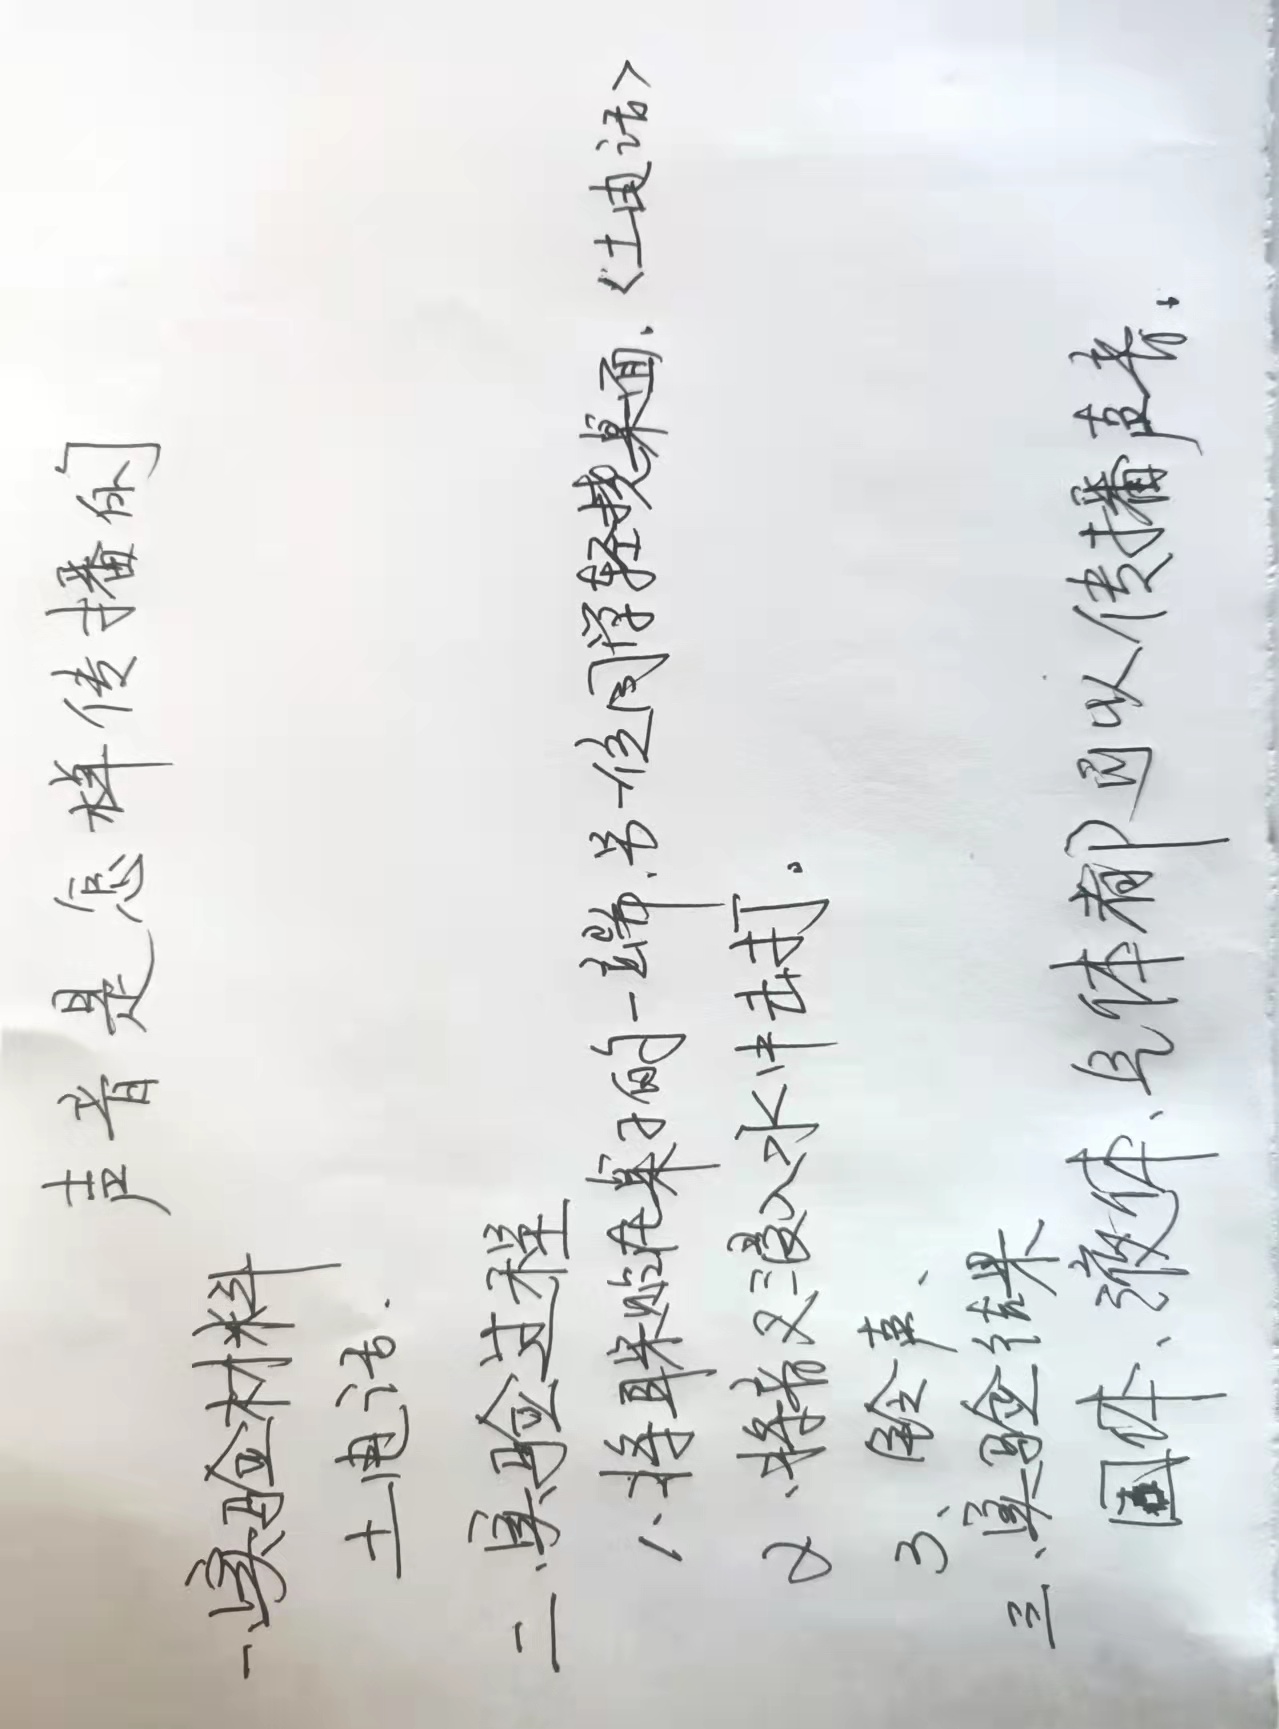 声音是怎样传播的
一实验材料
土电话.
二、实验过程
1、将耳朵贴在桌子的一端、另一位同学轻拨桌面、〈土电话〉
2、将音叉浸入水中击打。
3、 声、
三、实验结果
固体、液体、气体都可以传播声音。